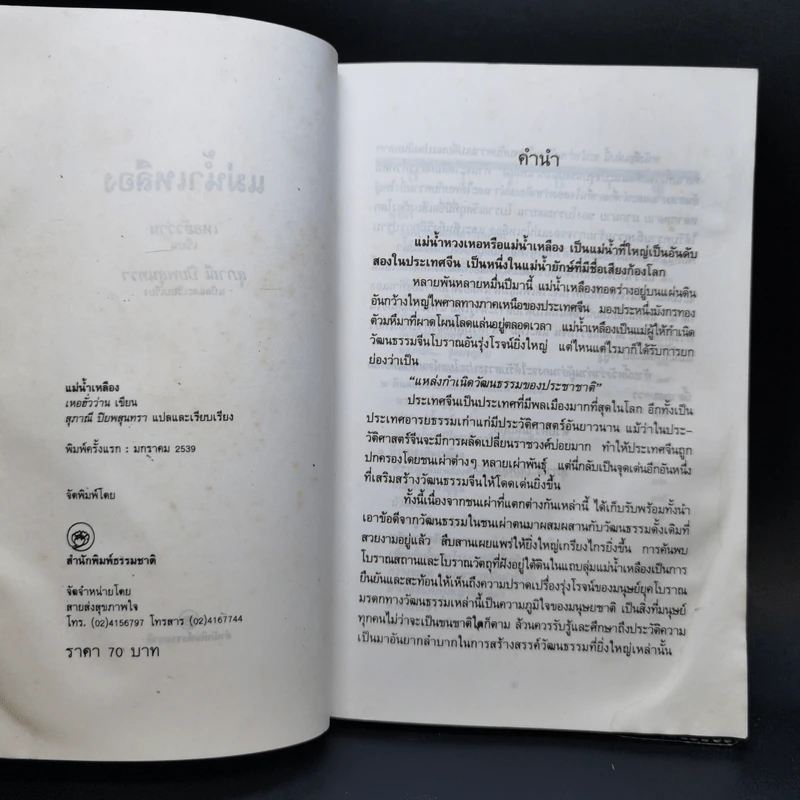 แม่น้ำเหลือง
เหอฮั่วว่าน เขียน
สุภาณี ปิยพสุนทรา แปลและเรียบเรียง
พิมพ์ครั้งแรก : มกราคม 2539
จัดพิมพ์โดย
สำนักพิมพ์ธรรมชาติ
จัดจำหน่ายโดย
สายส่งสุขภาพใจ
โทร. (02)4156797 โทรสาร (02)4167744
ราคา 70 บาท
คำนำ
แม่น้ำหวงเหอหรือแม่น้ำเหลือง เป็นแม่น้ำที่ใหญ่เป็นอันดับ
สองในประเทศจีน เป็นหนึ่งในแม่น้ำยักษ์ที่มีชื่อเสียงก้องโลก
หลายพันหลายหมื่นปีมานี้ แม่น้ำเหลืองทอดร่างอยู่บนแผ่นดิน
อันกว้างใหญ่ไพศาลทางภาคเหนือของประเทศจีน มองประหนึ่งมังกรทอง
ตัวมหึมาที่ผาดโผนโลดแล่นอยู่ตลอดเวลา แม่น้ำเหลืองเป็นแม่ผู้ให้กำเนิด
วัฒนธรรมจีนโบราณอันรุ่งโรจน์ยิ่งใหญ่ แต่ไหนแต่ไรมาก็ได้รับการยก
ย่องว่าเป็น
“แหล่งกำเนิดวัฒนธรรมของประชาชาติ”
ประเทศจีนเป็นประเทศที่มีพลเมืองมากที่สุดในโลก อีกทั้งเป็น
ประเทศอารยธรรมเก่าแก่มีประวัติศาสตร์อันยาวนาน แม้ว่าในประ-
วัติศาสตร์จีนจะมีการผลัดเปลี่ยนราชวงศ์บ่อยมาก ทำให้ประเทศจีนถูก
ปกครองโดยชนเผ่าต่างๆ หลายเผ่าพันธุ์ แต่นี่กลับเป็นจุดเด่นอีกอันหนึ่ง
ที่เสริมสร้างวัฒนธรรมจีนให้โดดเด่นยิ่งขึ้น
ทั้งนี้เนื่องจากชนเผ่าที่แตกต่างกันเหล่านี้ ได้เก็บรับพร้อมทั้งนำ
เอาข้อดีจากวัฒนธรรมในชนเผ่าตนมาผสมผสานกับวัฒนธรรมดั้งเดิมที่
สวยงามอยู่แล้ว สืบสานเผยแพร่ให้ยิ่งใหญ่เกรียงไกรยิ่งขึ้น การค้นพบ
โบราณสถานและโบราณวัตถุที่ฝังอยู่ใต้ดินในแถบลุ่มแม่น้ำเหลืองเป็นการ
ยืนยันและสะท้อนให้เห็นถึงความปราดเปรื่องรุ่งโรจน์ของมนุษย์ยุคโบราณ
มรดกทางวัฒนธรรมเหล่านี้เป็นความภูมิใจของมนุษยชาติ เป็นสิ่งที่มนุษย์
ทุกคนไม่ว่าจะเป็นชนชาติใดก็ตาม ล้วนควรรับรู้และศึกษาถึงประวัติความ
เป็นมาอันยากลำบากในการสร้างสรรค์วัฒนธรรมที่ยิ่งใหญ่เหล่านั้น